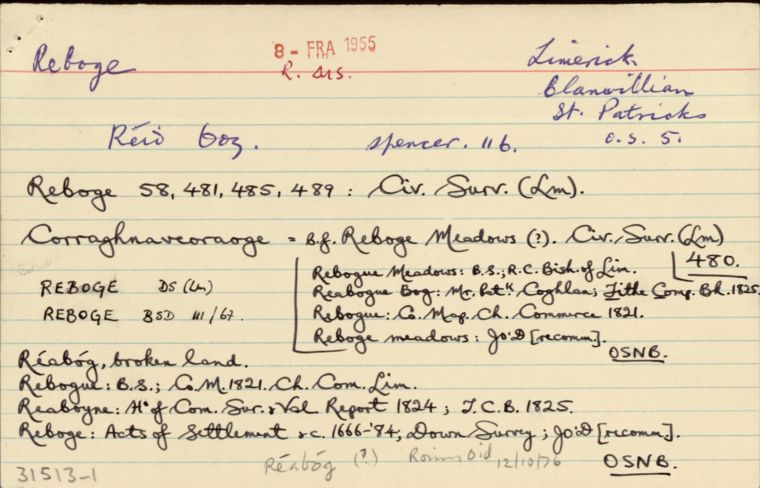 Reboge
8 - FRA 1955
R. MS.
Limerick
Clanwilliam
St. Patricks
O.S. 5.
Réid boz. Spencer. 116.
Reboge 58, 481, 485, 489 : Civ. Surv. (Lm).
Corraghnaveoraoge = B.f. Reboge Meadows (?). Civ. Surv. (Lm)
480.
REBOGE DS (Lm)
REBOGE BSD III/67.
Rebogue Meadows: B.S.; R.C. Bish. of Lim.
Reabogue Bog: Mr. Patk. Coghlan; Tithe Comp. Bk. 1825.
Rebogue: Co. Map. Ch. Commerce 1821.
Reboge meadows: Jo'D [recomm].
OSNB.
Réabóg, broken land.
Rebogue: B.S.; Co. M. 1821. Ch. Com. Lim.
Reaboyne: Ho. of Com. Sur. & Val. Report 1824; T.C.B. 1825.
Reboge: Acts of Settlement &c. 1666-'84; Down Survey; Jo'D [recomm].
OSNB.
Réabóg (?) 12/10/76
31513-1